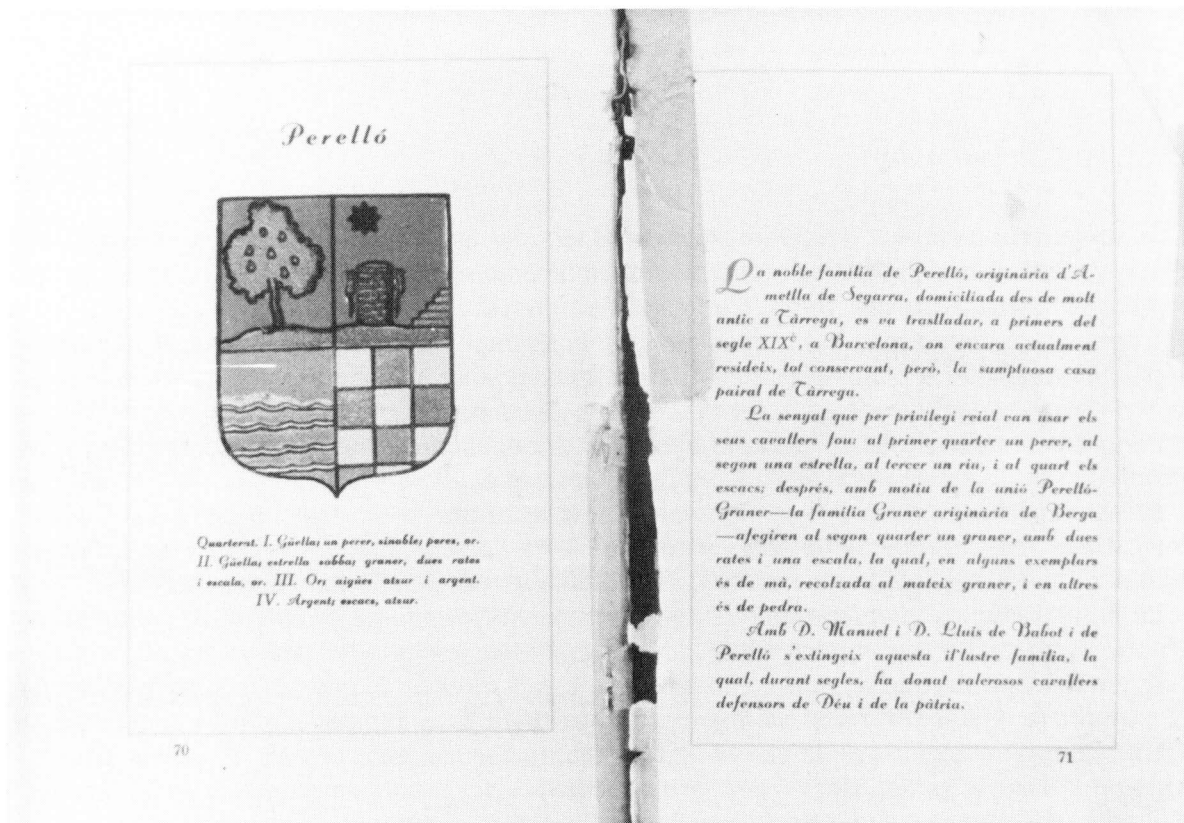 Perelló
Quarterat. I. Güella; un perer, sinable; peres, or.
II. Güella; estrella sabba; graner, dues rates
i escala, or. III. Or; aigües atzur i argent.
IV. Argent; escacs, atzur.
70
La noble família de Perelló, originària d'A-
metlla de Segarra, domiciliada des de molt
antic a Tàrrega, es va traslladar, a primers del
segle XIXè, a Barcelona, on encara actualment
resideix, tot conservant, però, la sumptuosa casa
pairal de Tàrrega.
La senyal que per privilegi reial van usar els
seus cavallers fou: al primer quarter un perer, al
segon una estrella, al tercer un riu, i al quart els
escacs; després, amb motiu de la unió Perelló-
Graner—la família Graner originària de Berga
—afegiren al segon quarter un graner, amb dues
rates i una escala, la qual, en alguns exemplars
és de mà, recolzada al mateix graner, i en altres
és de pedra.
Amb D. Manuel i D. Lluís de Babot i de
Perelló s'extingeix aquesta il·lustre família, la
qual, durant segles, ha donat valerosos cavallers
defensors de Déu i de la pàtria.
71